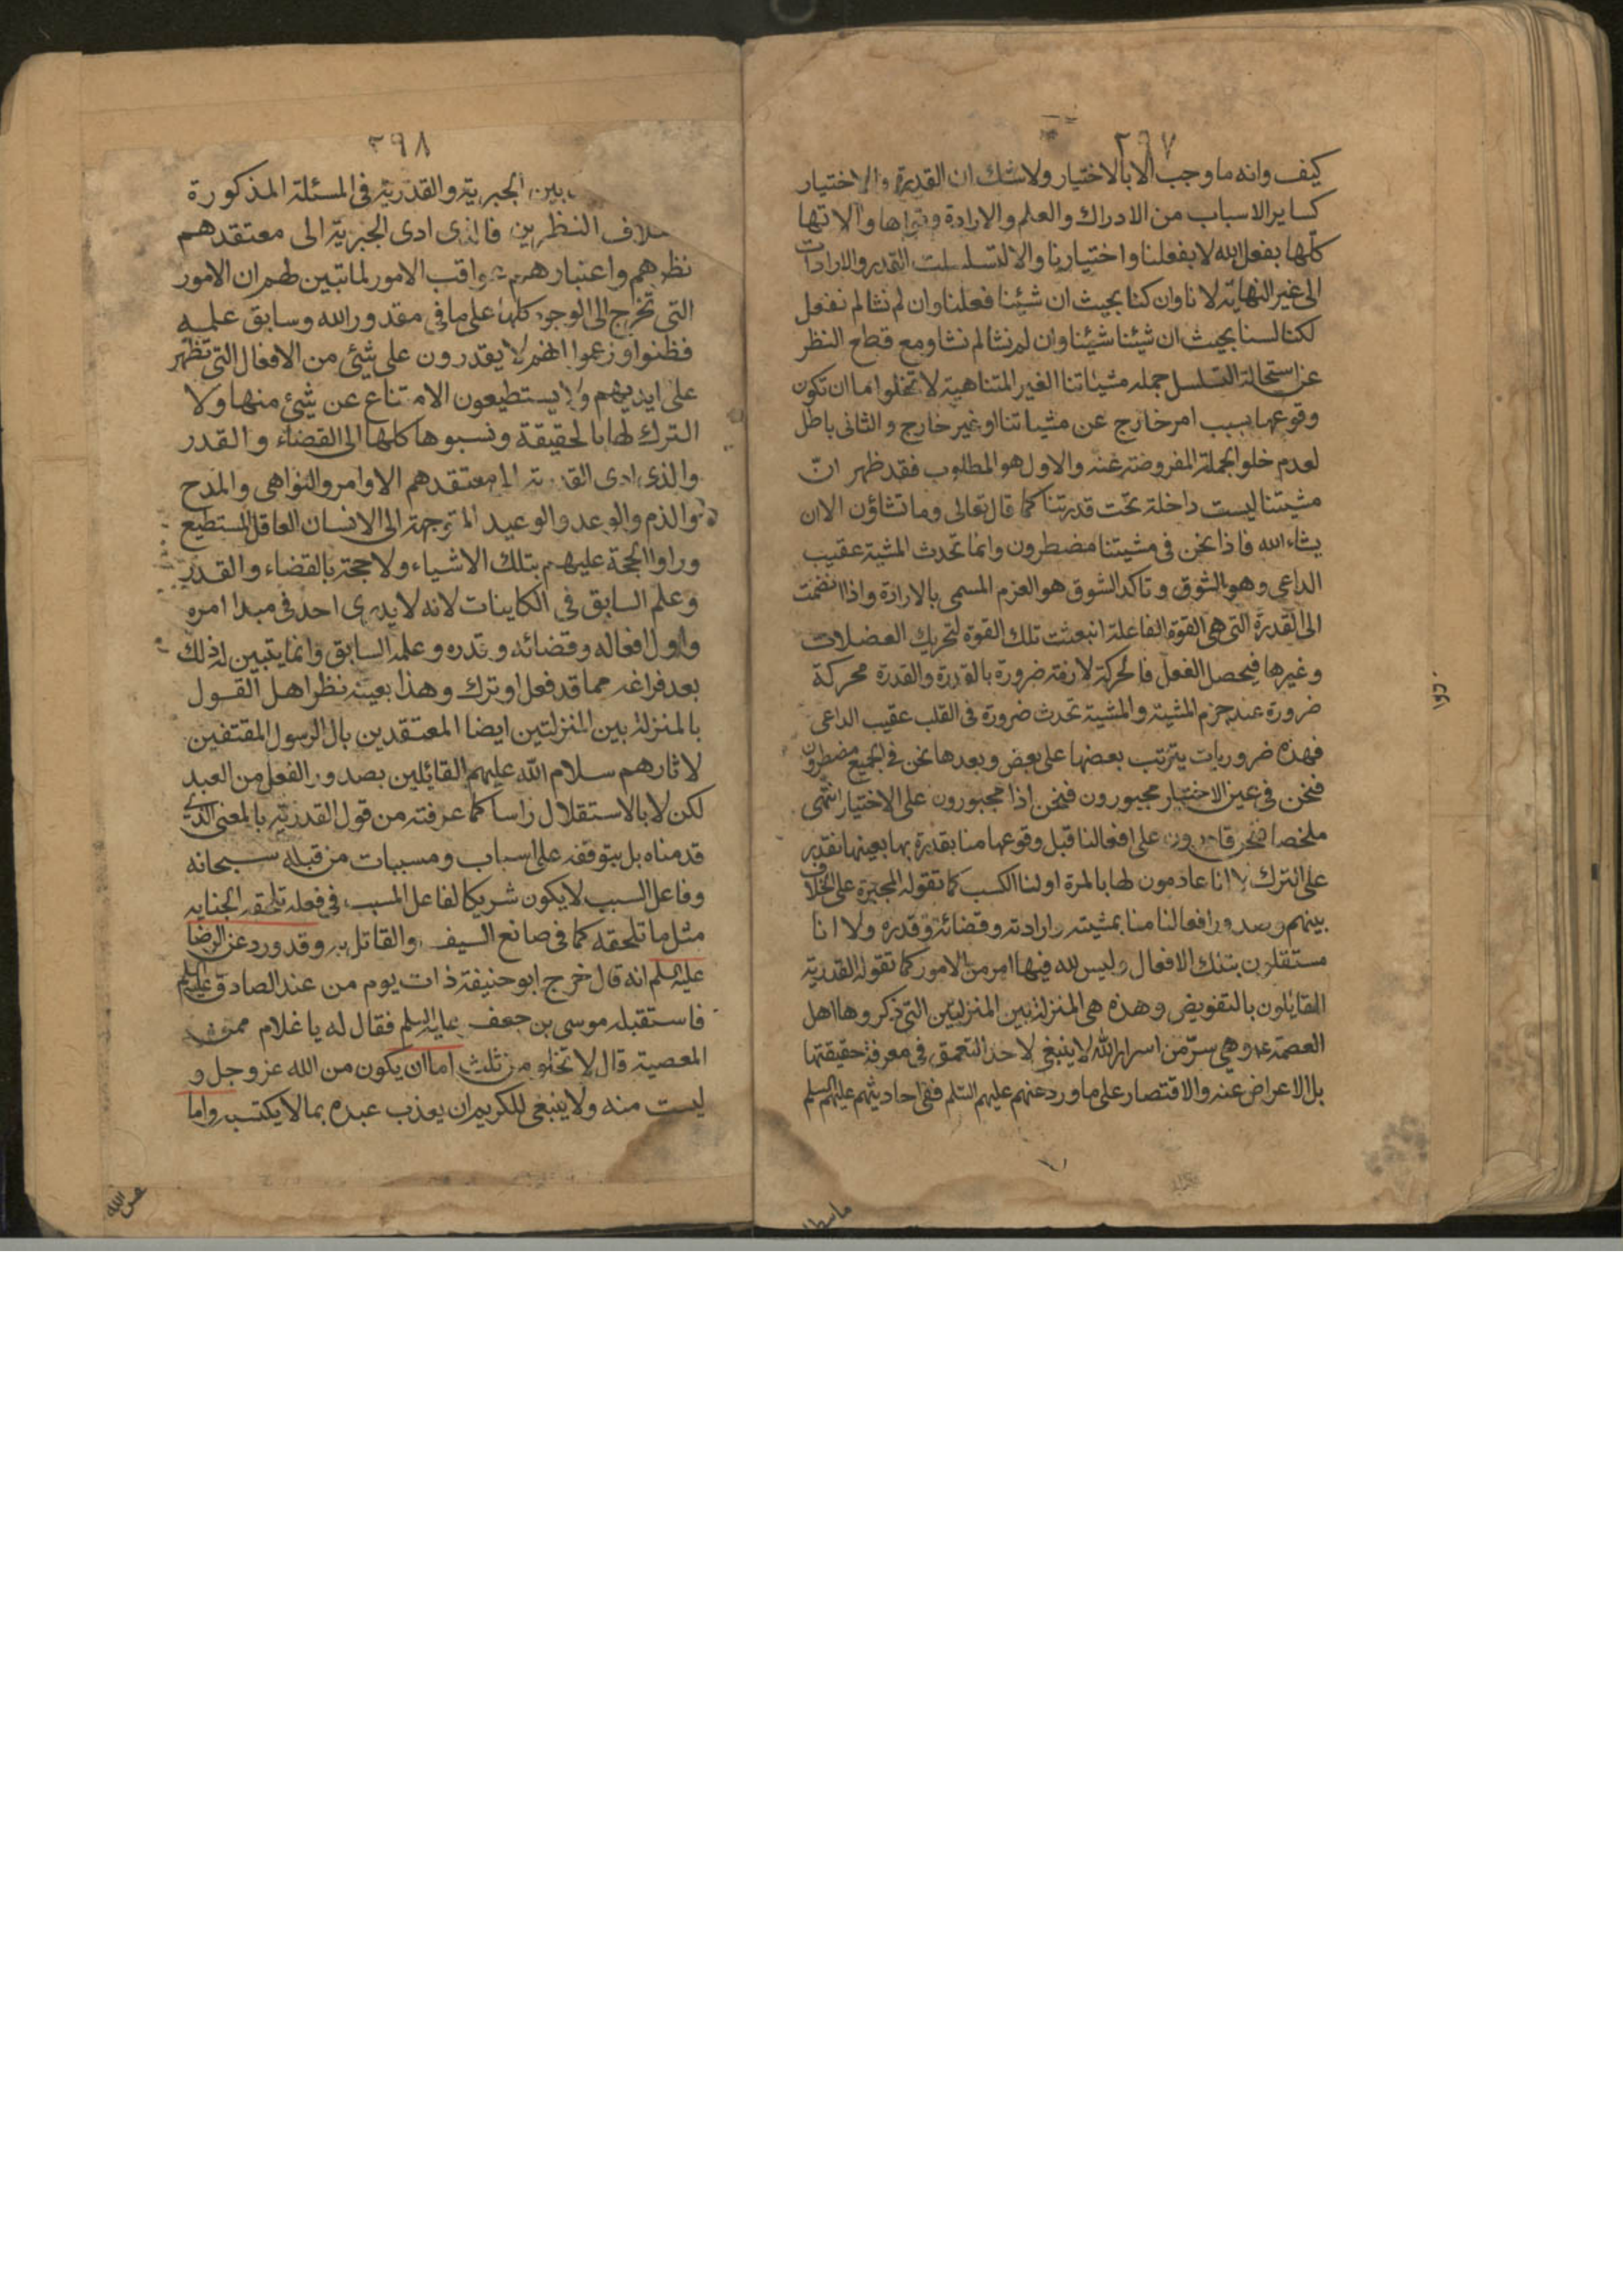 ٢٩٧
كيف وانه ما وجب الا بالاختيار ولا شك ان القدرة والاختيار
كساير الاسباب من الادراك والعلم والارادة وقواها والاتها
كلها بفعل الله لا بفعلنا واختيارنا والا لتسلسلت القدر والارادات
الى غير النهاية لانا وان كنا بحيث ان شئنا فعلنا وان لم نشا لم نفعل
لكنا لسنا بحيث ان شئنا شئنا وان لم نشا لم نشا ومع قطع النظر
عن استحالة التسلسل جملة مشياتنا الغير المتناهية لا تخلوا اما ان تكون
وقوعها بسبب امر خارج عن مشياتنا او غير خارج والثانى باطل
لعدم خلو الجملة المفروضة عنه والاول هو المطلوب فقد ظهر انّ
مشيتنا ليست داخلة تحت قدرتنا كما قال تعالى وما تشاؤن الا ان
يشاء الله فاذا نحن فى مشيتنا مضطرون وانما تحدث المشية عقيب
الداعى وهو الشوق وتاكد الشوق هو العزم المسمى بالارادة واذا انضمت
الى القدرة التى هى القوة الفاعلة انبعثت تلك القوة لتحريك العضلات
وغيرها فيحصل الفعل فالحركة لازمة ضرورة بالقدرة والقدرة محركة
ضرورة عند جزم المشية والمشية تحدث ضرورة فى القلب عقيب الداعى
فهذه ضروريات يترتب بعضها على بعض وبعدها نحن فى الجميع مضطرون
فنحن فى عين الاختيار مجبورون فنحن اذا مجبورون على الاختيار انتهى
ملخصا فنحن قادرون على افعالنا قبل وقوعها منا بقدرة بها بعينها نقدر
على الترك لا انا عادمون لها بالمرة او لنا الكسب كما تقوله المجبرة على الخلاف
بينهم وصدور افعالنا منا بمشيته وارادته وقضائه وقدره ولا انا
مستقلون بتلك الافعال وليس لله فيها امر من الامور كما تقوله القدرية
القايلون بالتفويض وهذه هى المنزلة بين المنزلتين التى ذكروها اهل
العصمة ع وهى سرّ من اسرار الله لا ينبغى لاحد التعمق فى معرفة حقيقتها
بل الاعراض عنه والاقتصار على ما ورد عنهم عليهم السلم ففى احاديثهم عليهم السلم
٢٩٨
بين الجبرية والقدرية فى المسئلة المذكورة
النظرين فالذى ادى الجبرية الى معتقدهم
نظرهم واعتبارهم عواقب الامور لما تبين لهم ان الامور
التى تخرج الى الوجود كلها على ما فى مقدور الله وسابق علمه
فظنوا وزعموا انهم لا يقدرون على شئ من الافعال التى تظهر
على ايديهم ولا يستطيعون الامتناع عن شئ منها ولا
الترك لها بالحقيقة ونسبوها كلها الى القضاء والقدر
والذى ادى القدرية الى معتقدهم الاوامر والنواهى والمدح
والذم والوعد والوعيد المتوجهة الى الانسان العاقل المستطيع
وراوا الحجة عليهم بتلك الاشياء ولا حجة بالقضاء والقدر
وعلم السابق فى الكاينات لانه لا يدرى احد فى مبدا امره
واول افعاله وقضائه وقدره وعلمه السابق وانما يتبين له ذلك
بعد فراغه مما قد فعل او ترك وهذا بعينه نظر اهل القول
بالمنزلة بين المنزلتين ايضا المعتقدين بال الرسول المقتفين
لاثارهم سلام الله عليهم القائلين بصدور الفعل من العبد
لكن لا بالاستقلال راسا كما عرفته من قول القدرية بالمعنى الذى
قدمناه بل بتوقفه على اسباب ومسببات من قبله سبحانه
وفاعل السبب لا يكون شريكا لفاعل المسبب فى فعله تلحقه الجناية
مثل ما تلحقه كما فى صانع السيف والقاتل به وقد ورد عن الرضا
عليه السلم انه قال خرج ابو حنيفة ذات يوم من عند الصادق عليه السلم
فاستقبله موسى بن جعفر عليه السلم فقال له يا غلام ممن
المعصية قال لا تخلو من ثلث اما ان يكون من الله عز وجل و
ليست منه ولا ينبغى للكريم ان يعذب عبده بما لا يكتسبه واما